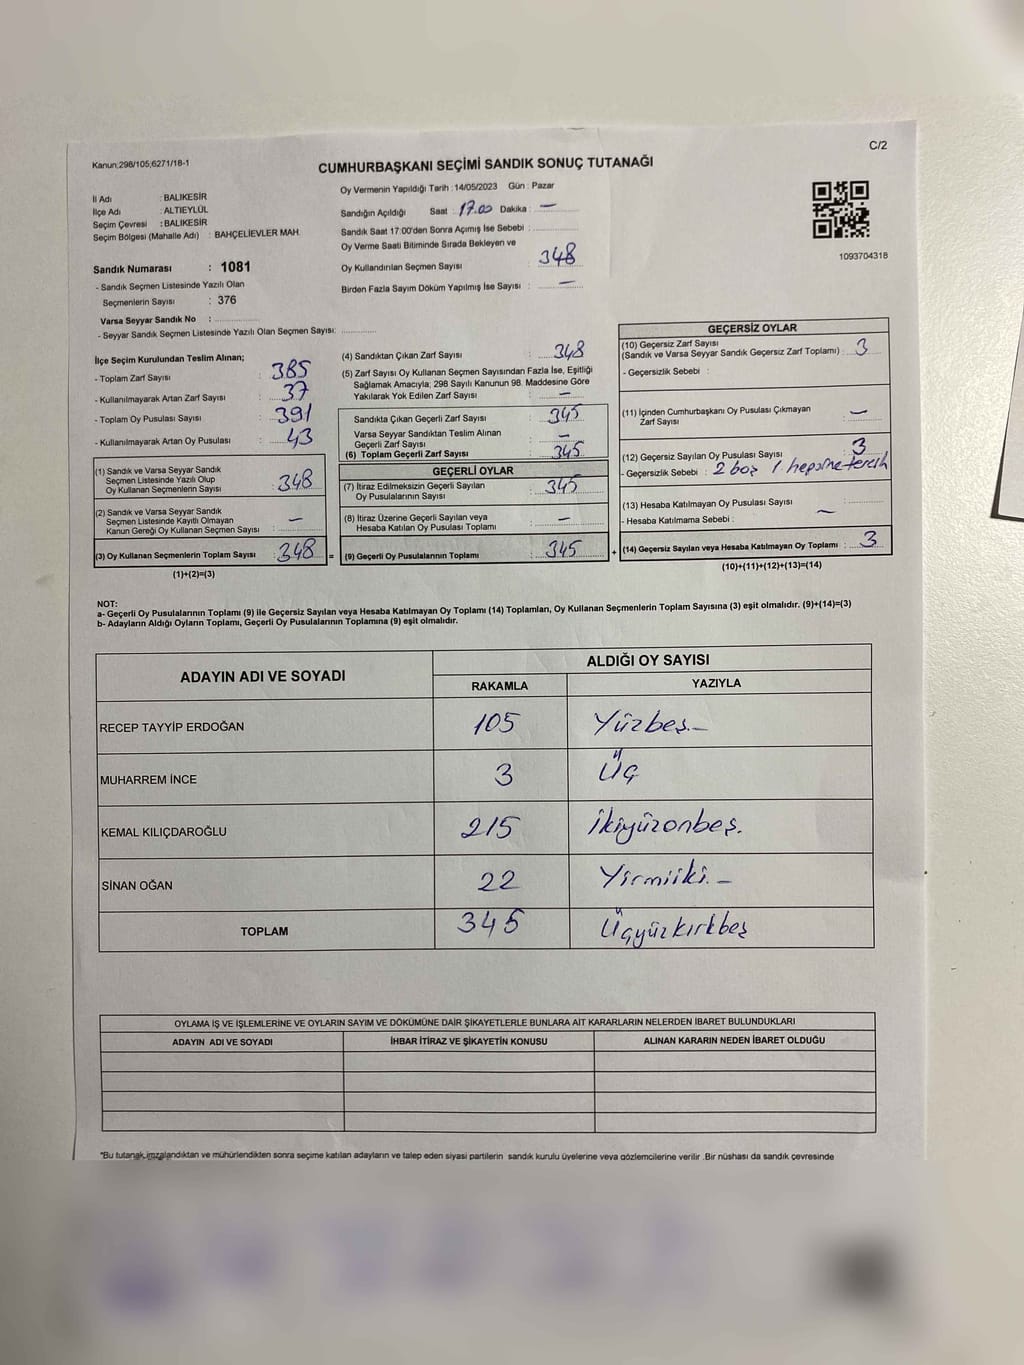 Kanun;298/105,6271/18-1
C/2
CUMHURBAŞKANI SEÇİMİ SANDIK SONUÇ TUTANAĞI
İl Adı : BALIKESİR
İlçe Adı : ALTIEYLÜL
Seçim Çevresi : BALIKESİR
Seçim Bölgesi (Mahalle Adı) : BAHÇELİEVLER MAH.
Sandık Numarası : 1081
- Sandık Seçmen Listesinde Yazılı Olan
Seçmenlerin Sayısı : 376
Varsa Seyyar Sandık No :
- Seyyar Sandık Seçmen Listesinde Yazılı Olan Seçmen Sayısı:
Oy Vermenin Yapıldığı Tarih : 14/05/2023 Gün : Pazar
Sandığın Açıldığı Saat : 17.00 Dakika : —
Sandık Saat 17:00'den Sonra Açımış İse Sebebi :
Oy Verme Saati Bitiminde Sırada Bekleyen ve
Oy Kullandırılan Seçmen Sayısı : 348
Birden Fazla Sayım Döküm Yapılmış İse Sayısı : —
1093704318
İlçe Seçim Kurulundan Teslim Alınan;
- Toplam Zarf Sayısı : 385
- Kullanılmayarak Artan Zarf Sayısı : 37
- Toplam Oy Pusulası Sayısı : 391
- Kullanılmayarak Artan Oy Pusulası : 43
(1) Sandık ve Varsa Seyyar Sandık
Seçmen Listesinde Yazılı Olup
Oy Kullanan Seçmenlerin Sayısı : 348
(2) Sandık ve Varsa Seyyar Sandık
Seçmen Listesinde Kayıtlı Olmayan
Kanun Gereği Oy Kullanan Seçmen Sayısı : —
(3) Oy Kullanan Seçmenlerin Toplam Sayısı : 348 =
(1)+(2)=(3)
(4) Sandıktan Çıkan Zarf Sayısı : 348
(5) Zarf Sayısı Oy Kullanan Seçmen Sayısından Fazla İse, Eşitliği
Sağlamak Amacıyla; 298 Sayılı Kanunun 98. Maddesine Göre
Yakılarak Yok Edilen Zarf Sayısı : —
Sandıkta Çıkan Geçerli Zarf Sayısı : 345
Varsa Seyyar Sandıktan Teslim Alınan
Geçerli Zarf Sayısı : —
(6) Toplam Geçerli Zarf Sayısı : 345
GEÇERLİ OYLAR
(7) İtiraz Edilmeksizin Geçerli Sayılan
Oy Pusulalarının Sayısı : 345
(8) İtiraz Üzerine Geçerli Sayılan veya
Hesaba Katılan Oy Pusulası Toplamı : —
(9) Geçerli Oy Pusulalarının Toplamı : 345 +
GEÇERSİZ OYLAR
(10) Geçersiz Zarf Sayısı
(Sandık ve Varsa Seyyar Sandık Geçersiz Zarf Toplamı) : 3
- Geçersizlik Sebebi :
(11) İçinden Cumhurbaşkanı Oy Pusulası Çıkmayan
Zarf Sayısı : —
(12) Geçersiz Sayılan Oy Pusulası Sayısı : 3
- Geçersizlik Sebebi : 2 boş 1 hepsine tercih
(13) Hesaba Katılmayan Oy Pusulası Sayısı :
- Hesaba Katılmama Sebebi : —
(14) Geçersiz Sayılan veya Hesaba Katılmayan Oy Toplamı : 3
(10)+(11)+(12)+(13)=(14)
NOT:
a- Geçerli Oy Pusulalarının Toplamı (9) ile Geçersiz Sayılan veya Hesaba Katılmayan Oy Toplamı (14) Toplamları, Oy Kullanan Seçmenlerin Toplam Sayısına (3) eşit olmalıdır. (9)+(14)=(3)
b- Adayların Aldığı Oyların Toplamı, Geçerli Oy Pusulalarının Toplamına (9) eşit olmalıdır.
ADAYIN ADI VE SOYADI ALDIĞI OY SAYISI
RAKAMLA YAZIYLA
RECEP TAYYİP ERDOĞAN 105 Yüzbeş.—
MUHARREM İNCE 3 Üç
KEMAL KILIÇDAROĞLU 215 İkiyüzonbeş.
SİNAN OĞAN 22 Yirmiiki.—
TOPLAM 345 Üçyüzkırkbeş
OYLAMA İŞ VE İŞLEMLERİNE VE OYLARIN SAYIM VE DÖKÜMÜNE DAİR ŞİKAYETLERLE BUNLARA AİT KARARLARIN NELERDEN İBARET BULUNDUKLARI
ADAYIN ADI VE SOYADI İHBAR İTİRAZ VE ŞİKAYETİN KONUSU ALINAN KARARIN NEDEN İBARET OLDUĞU
*Bu tutanak,imzalandıktan ve mühürlendikten sonra seçime katılan adayların ve talep eden siyasi partilerin sandık kurulu üyelerine veya gözlemcilerine verilir .Bir nüshası da sandık çevresinde